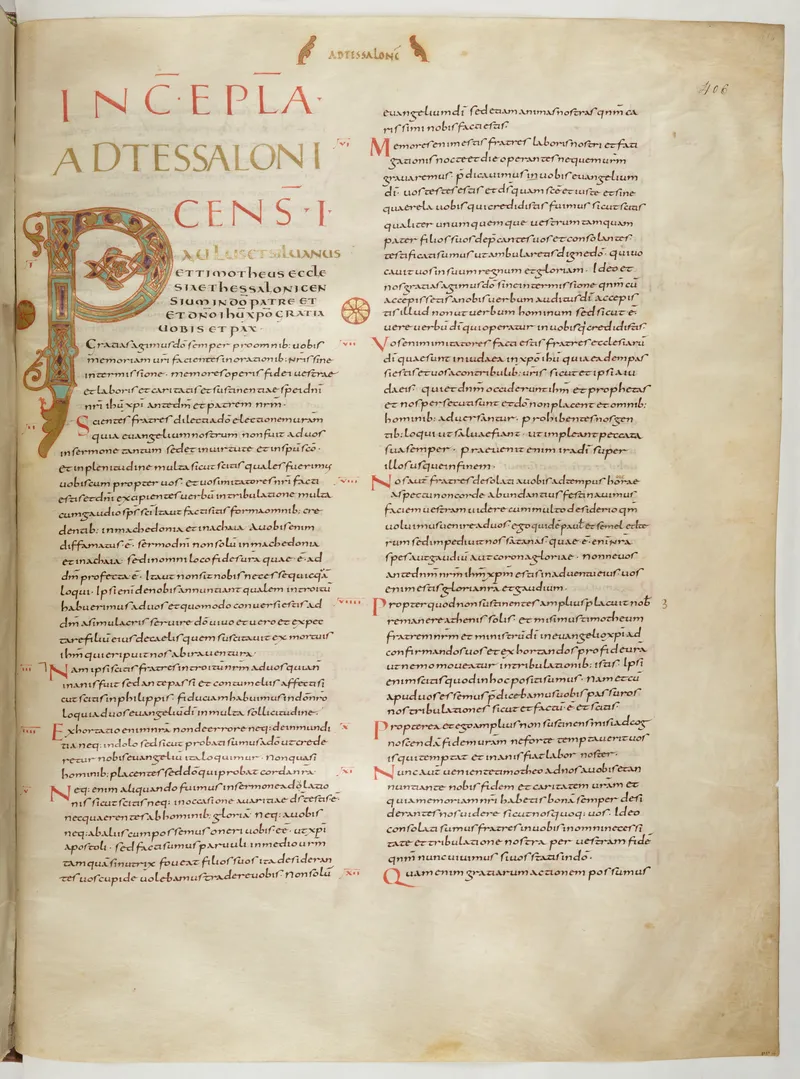 ADTESSALONC̄
406
INC̄·EPL̄A·
ADTESSALONI
CENS̄·I·
PAULUSETSILUANUS
ETTIMOTHEUS ECCLE
SIAETHESSALONICEN
SIUM INDŌ PATRE ET
ETDN̄OIHŪXPŌ GRATIA
UOBIS ET PAX·
Gratiasagimusdō semper proomnib: uobis
memoriam ur̄i facientesinorationib: nr̄is sine
intermissione· memoresoperis fidei uestrae
et laboris et caritatis et sustinentiae speidn̄i
nr̄i ihūxp̄i antedm̄ et patrem nrm̄·
Scientes fratres dilectiadō electionemuram̄
quia euangelium nostrum nonfuit aduos
insermone tantum sedet inuirtute et insp̄usc̄o·
et inplenitudine multa sicut scitis qualesfuerimus
uobiscum propter uos· et uosimitatores nr̄i facti
estis etdn̄i excipientes uerbū intribulatione multa
cumgaudio sp̄s sc̄i Itaut factisitis formaomnib: cre
dentib: inmachedonia et inachaia Auobis enim
diffamatus ē· sermodn̄i nonsolū inmachedonia
et inachaia· sedinomni loco fides ura quae· ē· ad
dm̄ profecta ē· Itaut nonsit nobis necesse quicqā
loqui· Ipsi enidenobis annuntiant qualem introitū
habuerimus aduos et quomodo conuersi estis ad
dm̄ asimulacris seruire dō uiuo et uero et expec
tare filiū eius decaelis quem suscitauit ex mortuis
ihm̄ quieripuit nos abira uentura·
Nam ipsi scitis fratres introitūnrm̄ aduos quian
inanis fuit sed antepassi et contumeliis affecti
sicut scitis inphilippis· fiduciam habuimus indn̄onro
loqui aduos euangeliūdī inmulta sollicitudine·
Exhortatio enimnra nondeerrore neq: deinmundi
tia neq: indolo sedsicut probati sumus adō utcrede
retur nobis euangeliū ita loquimur· Nonquasi
hominib: placentes sed dō qui probat cordanra·
Neq: enim aliquando fuimus insermone adōlatio
nis sicut scitis neq: inoccasione auaritiae ds̄ testis·
necquaerentes ab hominib: gloriā neq: auobis
neq: abaliis cum possemus oneri uobis ee· ut xp̄i
apostoli· sed facti sumus paruuli inmedio urm
tamquā si nutrix foueat filios suos ita desideran
tes uos cupide uolebamus tradere uobis nonsolū
euangeliumdī sed etiam animas nostras qnm̄ ca
rissimi nobis facti estis·
Memores enim estis fratres laboris nostri et fati
gationis nocte et die operantes nequem urm
grauaremus· p̄dicauimus in uobis euangelium
dī· uos testes estis et ds̄ quam sc̄e et iuste et sine
quaerela uobis qui credidistis fuimus sicut scitis
qualiter unumquemque uestrum tamquam
pater filios suos dep̄cantes uos et consolantes
testificati sumus ut ambularetis digne dō· qui uo
cauit uos insuum regnum et gloriam· Ideo et
nos gratias agimus dō sine intermissione qnm̄ cū
accepissetis anobis uerbum auditus dī accepis
tis illud non ut uerbum hominum sed sicut ē·
uere uerbū dī qui operatur in uobis q̄ credidistis·
Vos enim imitatores facti estis fratres ecclesiarū
dī quae sunt in iudaea inxpō ihū quia eadem pas
si estis et uos acontribulib: uris̄ sicut et ipsi aiu
daeis· qui et dnm̄ occiderunt ihm̄ et prophetas
et nos persecuti sunt et dō non placent et omnib:
hominib: aduersantur· prohibentes nos gen
tib: loqui ut saluae fiant· ut impleant peccata
sua semper· praeuenit enim ira dī super
illos usque infinem·
Nos aut̄ fratres desolati auobis adtempus horae
aspectu non corde abundantius festinauimus
faciem uestram uidere cum multo desiderio qm̄
uoluimus uenire ad uos ego quidē paul: et semel et ite
rum sed impediuit nos satanas quae ē· eni sp̄nra
spes aut gaudiū aut corona gloriae· nonne uos
ante dnm̄ nrm̄ ihm̄ xpm̄ estis in aduentu eius uos
enim estis gloria nr̄a et gaudium·
Propter quod non sustinentes amplius placuit nob̄
remanere athenis solis· et misimus timotheum
fratrem nrm̄ et ministrū dī in euangelio xp̄i ad
confirmandos uos et exhortandos pro fide urā
ut nemo moueatur in tribulationib: istis· Ipsi
enim scitis quod in hoc positi sumus· nam et cū
apud uos essemus p̄dicebamus uobis passuros
nos tribulationes sicut et factū ē· et scitis·
Propterea et ego amplius non sustinens misi ad cog
noscendā fidem uram̄ ne forte temptauerit uos
is qui temptat et inanis fiat labor noster·
Nunc aut̄ ueniente timotheo ad nos auobis et an
nuntiante nobis fidem et caritatem uram̄ et
quia memoriam nr̄i habetis bonā semper desi
derantes nos uidere sicut nos quoq: uos· Ideo
consolati sumus fratres in uobis in omni necessi
tate et tribulatione nostra per uestram fidē
qnm̄ nunc uiuimus si uos statis in dō·
Quam enim gratiarum actionem possumus